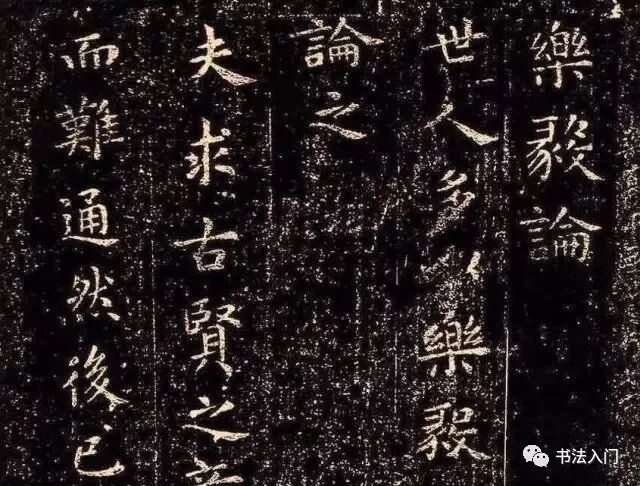 樂毅論
世人多以樂毅
論之
夫求古賢之意
而難通然後已
书法入门